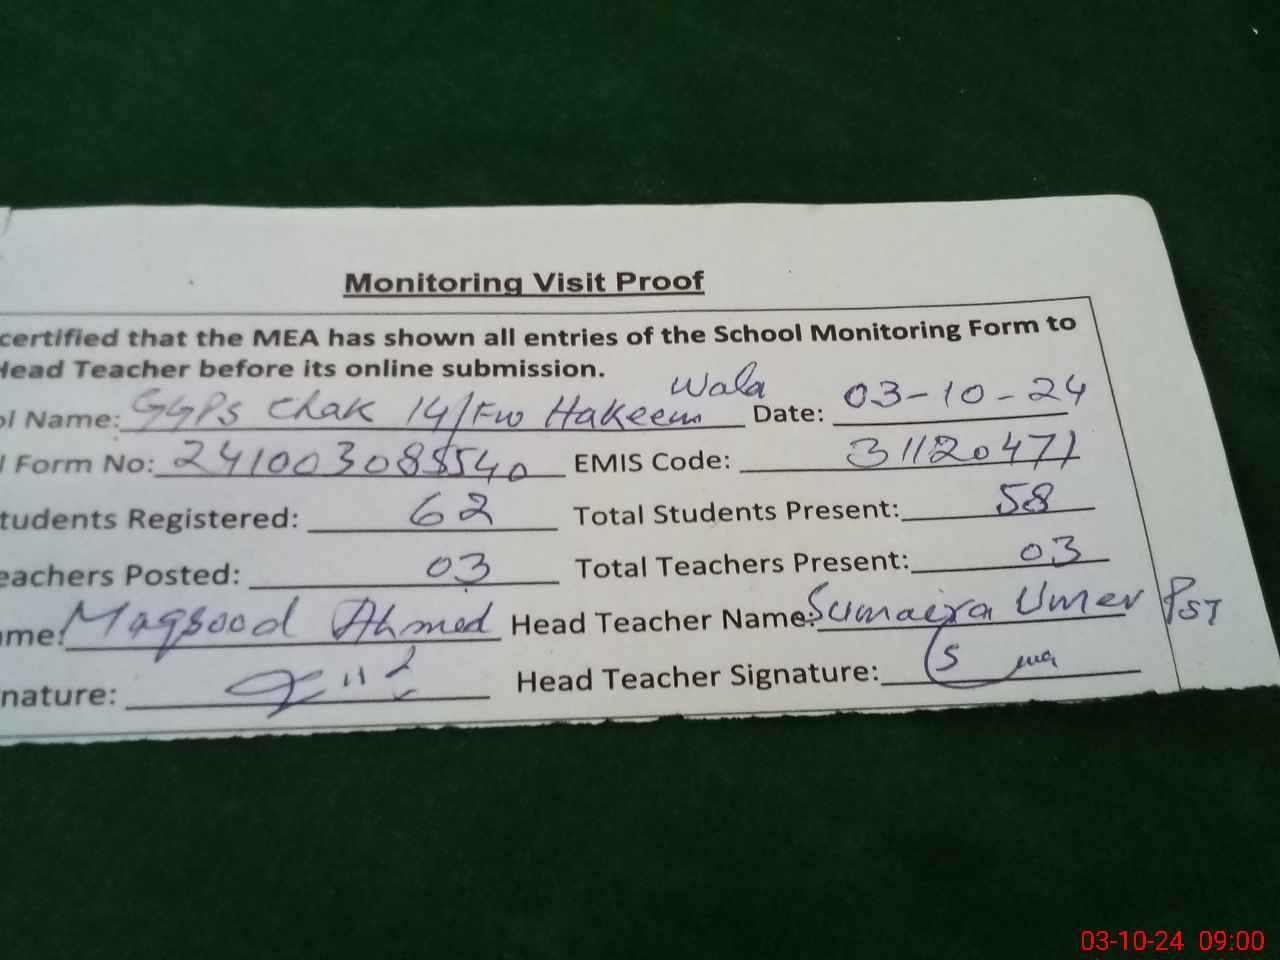 Monitoring Visit Proof
certified that the MEA has shown all entries of the School Monitoring Form to
Head Teacher before its online submission.
ol Name: GGPS Chak 14/FW Hakeem Wala Date: 03-10-24
l Form No: 241003088540 EMIS Code: 31120471
tudents Registered: 62 Total Students Present: 58
eachers Posted: 03 Total Teachers Present: 03
ame: Maqsood Ahmed Head Teacher Name: Sumaira Umer PST
nature: Head Teacher Signature:
03-10-24 09:00